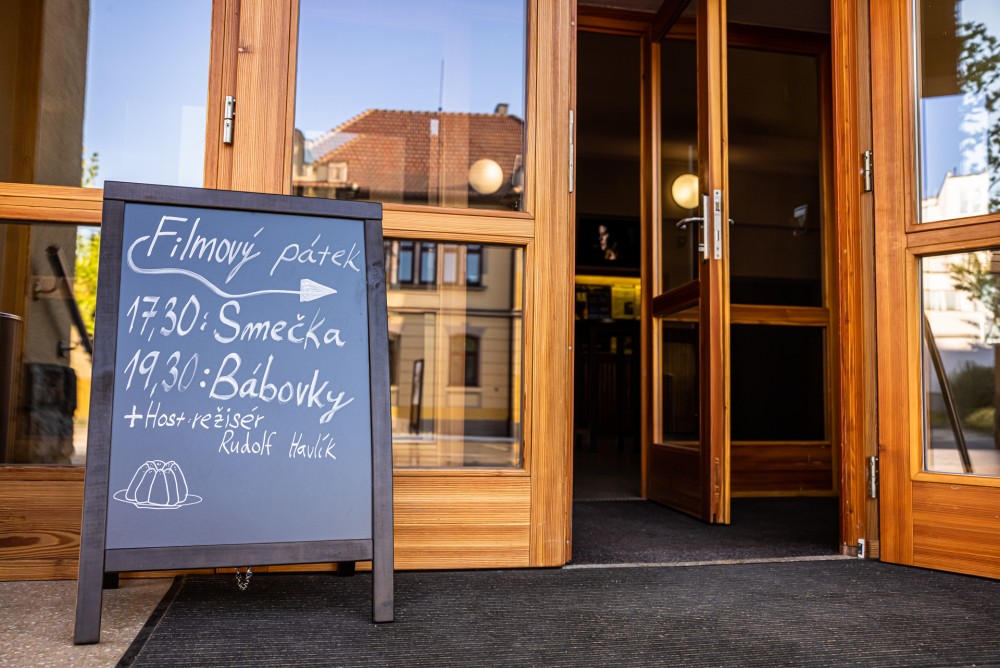 Filmový pátek
17,30: Smečka
19,30: Bábovky
+Host-režisér
Rudolf Havlík